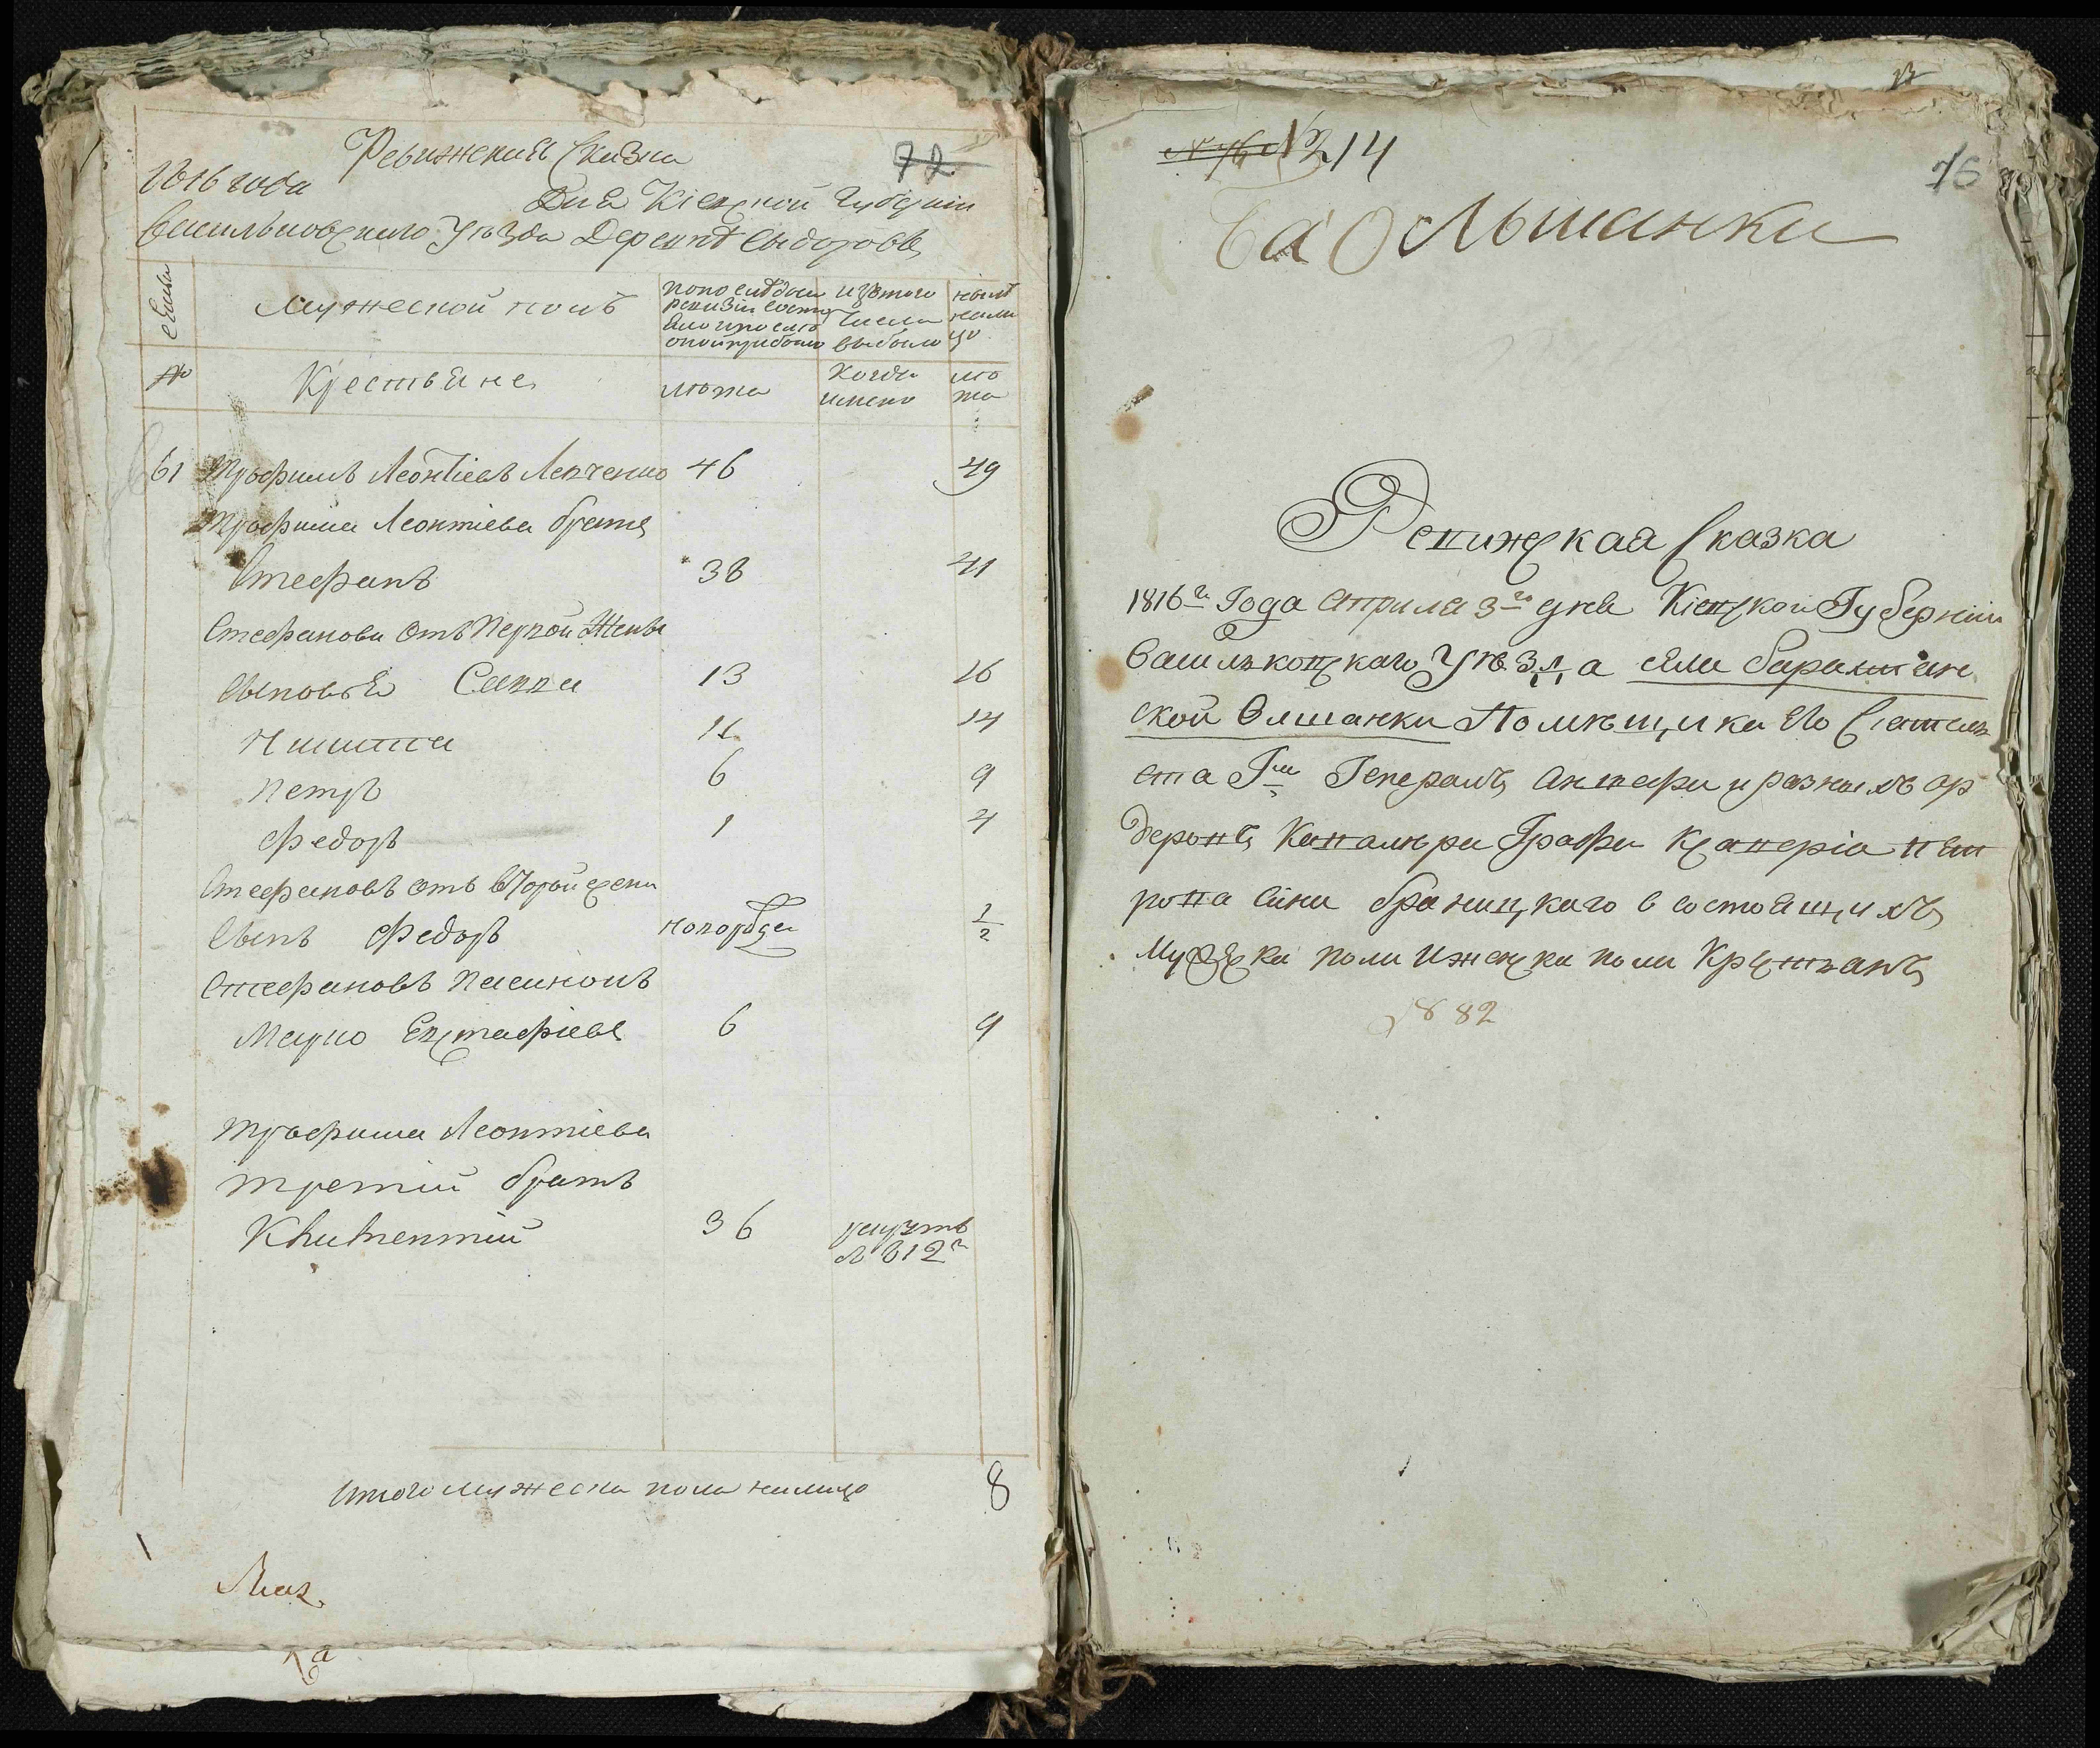 Ревижская Сказка
72
1816 года
Дня Кіевской Губерніи
Васильковскаго Уѣзда Деревнѣ Сыдоровкѣ
семьи
Мужеской полъ
по последнѣй ревизіи состояло и после оной прибыло
изъ того числа выбыло
нынѣ на лицо
№
Крестьяне
лѣта
когда имено
лѣта
61 Трофимъ Леонтіевъ Левченко 46 49
Трофима Леонтіева братъ
Стефанъ 38 41
Стефанови отъ первой жены
сыновья Савва 13 16
Никита 11 14
Петръ 6 9
Федоръ 1 4
Стефановъ отъ второй жены
сынъ Федоръ новорожден 1/2
Стефановъ пасинокъ
Марко Евстафіевъ 6 9
Трофима Леонтіева
третій братъ
Климентій 36 рекрутъ
в 812 г
Итого мужеска пола налицо 8
№ 76 № 214
76
Ба Ольшанки
Ревижская Сказка
1816го Года априля 3го дня Кіевской Губерніи
Васильковскаго Уѣзда села Барахтян
ской Олшанки Помѣщика Его Сіятель
ства Гна Генералъ Аншефа и разныхъ ор
деровъ Кавалера Графа Ксаверіа Пет
рова сина Браницкаго о состоящихъ
Мужеска пола и женска пола Крестьянъ
882